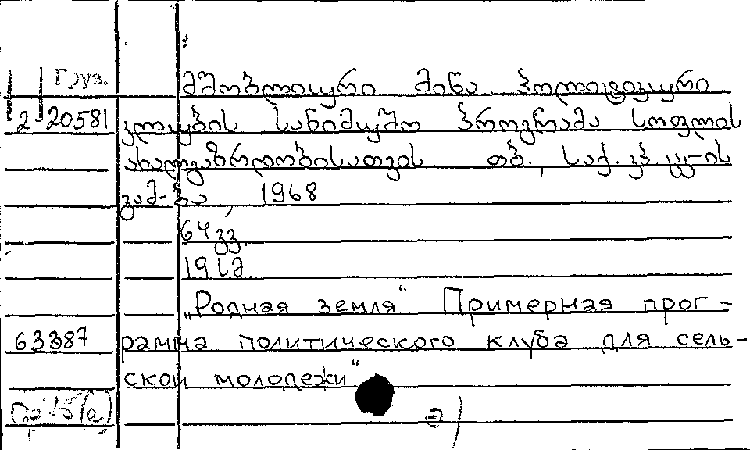 Груз.
მშობლიური მიწა პოლიტიკური
2-20581 კლუბის სანიმუშო პროგრამა სოფლის
ახალგაზრდობისათვის თბ., საქ. კპ ცკ-ის
გამ-ბა, 1968
64 გვ.
„Родная земля" Примерная прог-
63387 рамма политического клуба для сель-
ской молодежи"